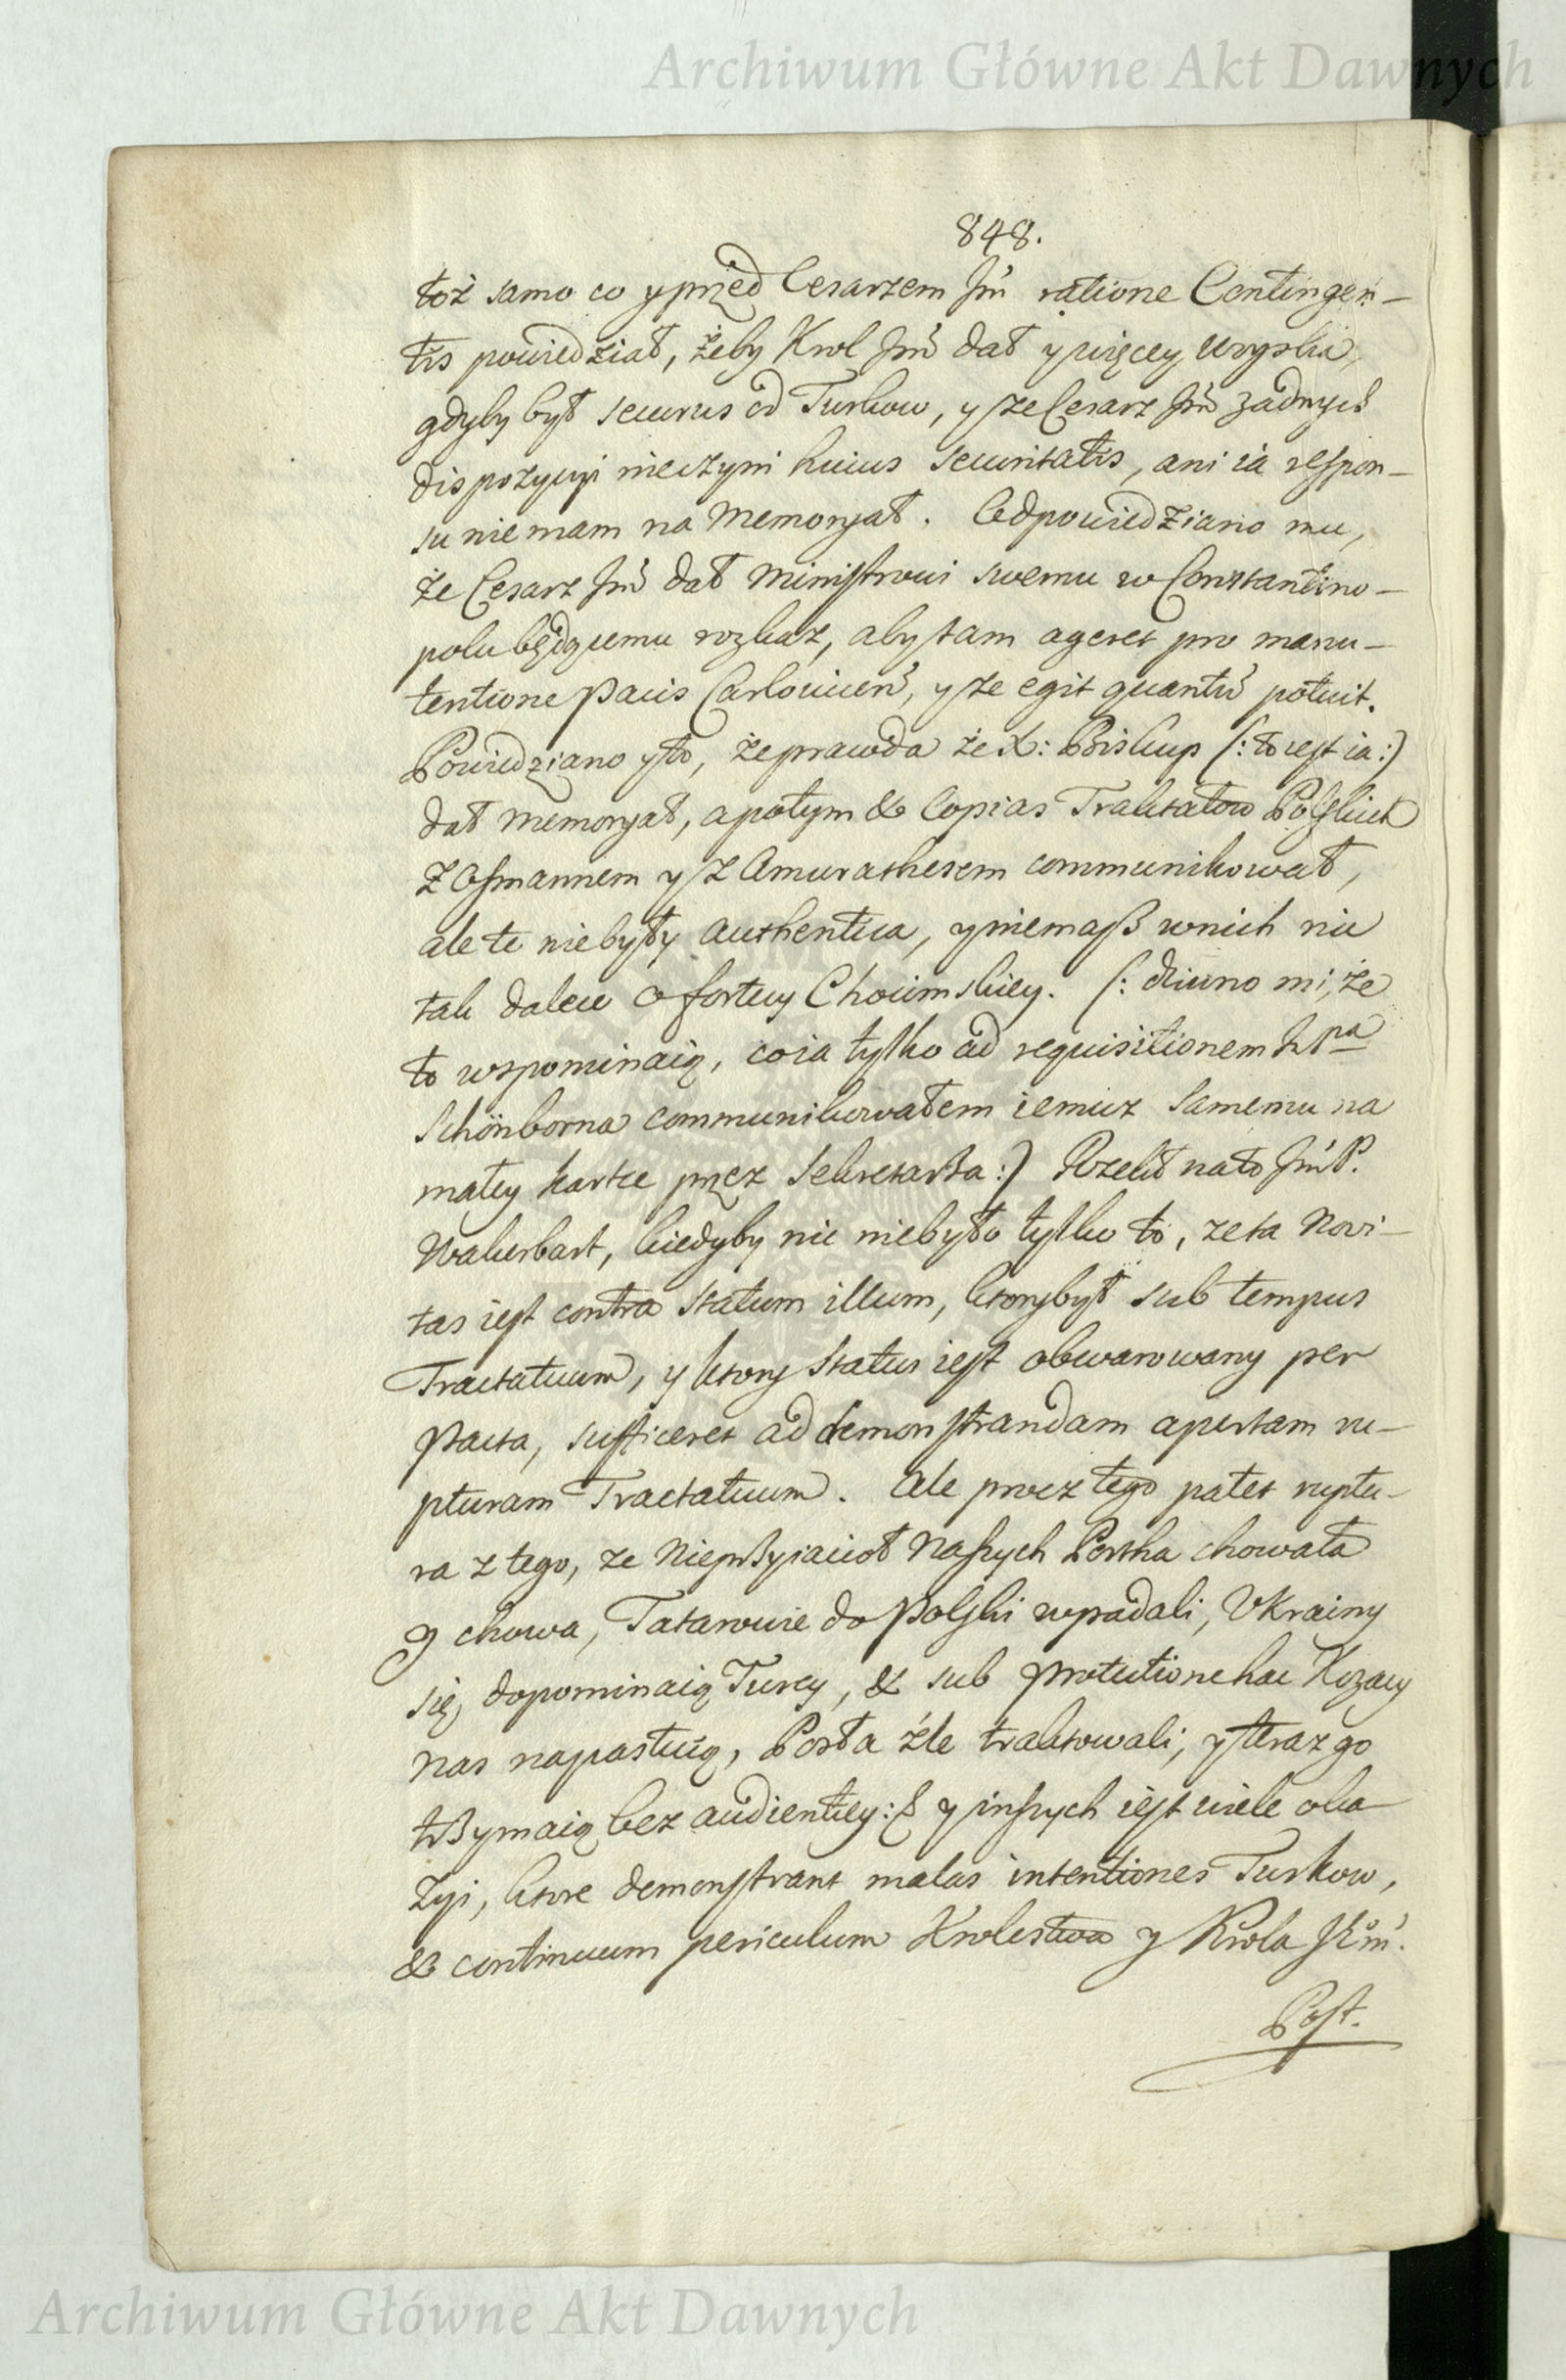 Archiwum Główne Akt Dawnych
848.
toż samo co y przed Cesarzem Jm̃ ratione Contingen-
tis powiedział, żeby Krol Jm̃ dał y więcey woyska,
gdyby był securus od Turkow, y że Cesarz Jm̃ żadnych
dispozycyi nieczyni huius securitatis, ani ia respon-
su nie mam na Memoryał. Odpowiedziano mu,
że Cesarz Jm̃ dał Ministrowi swemu w Constantino-
polu będącemu rozkaz, aby tam ageret pro manu-
tentione Pacis Carlovicen̄, y że egit quantū potuit.
Powiedziano y to, że prawda że X: Biskup (: to iest ia :)
dał Memoryał, a potym & Copias Traktatow Polskich
z Osmannem y z Amurathesem communikował,
ale te nie były authentica, y niemasz w nich nic
tak dalece o fortecy Chocimskiey. (: dziwno mi, że
to wspominaią, co ia tylko ad requisitionem hrpa
Schönborna communikowałem iemuż samemu na
małey kartce przez Sekretarza :) Rzekł na to Jm̃ P.
Wakerbart, kiedyby nic niebyło tylko to, że ta Novi-
tas iest contra statum illum, ktory był sub tempus
Tractatuum, y ktory status iest obwarowany per
Pacta, sufficeret ad demonstrandam apertam ru-
pturam Tractatuum. Ale procz tego patet ruptu-
ra z tego, że Nieprzyiacioł Naszych Portha chowała
y chowa, Tatarowie do Polski wpadali, Ukrainy
się dopominaią Turcy, & sub protectione hac Kozacy
nas napastuią, Posła źle traktowali, y teraz go
trzymaią bez audientiey: & y inszych iest wiele oka-
zyi, ktore demonstrant malas intentiones Turkow,
& continuum periculum Krolestwa y Krola JKm̃.
Post.
Archiwum Główne Akt Dawnych